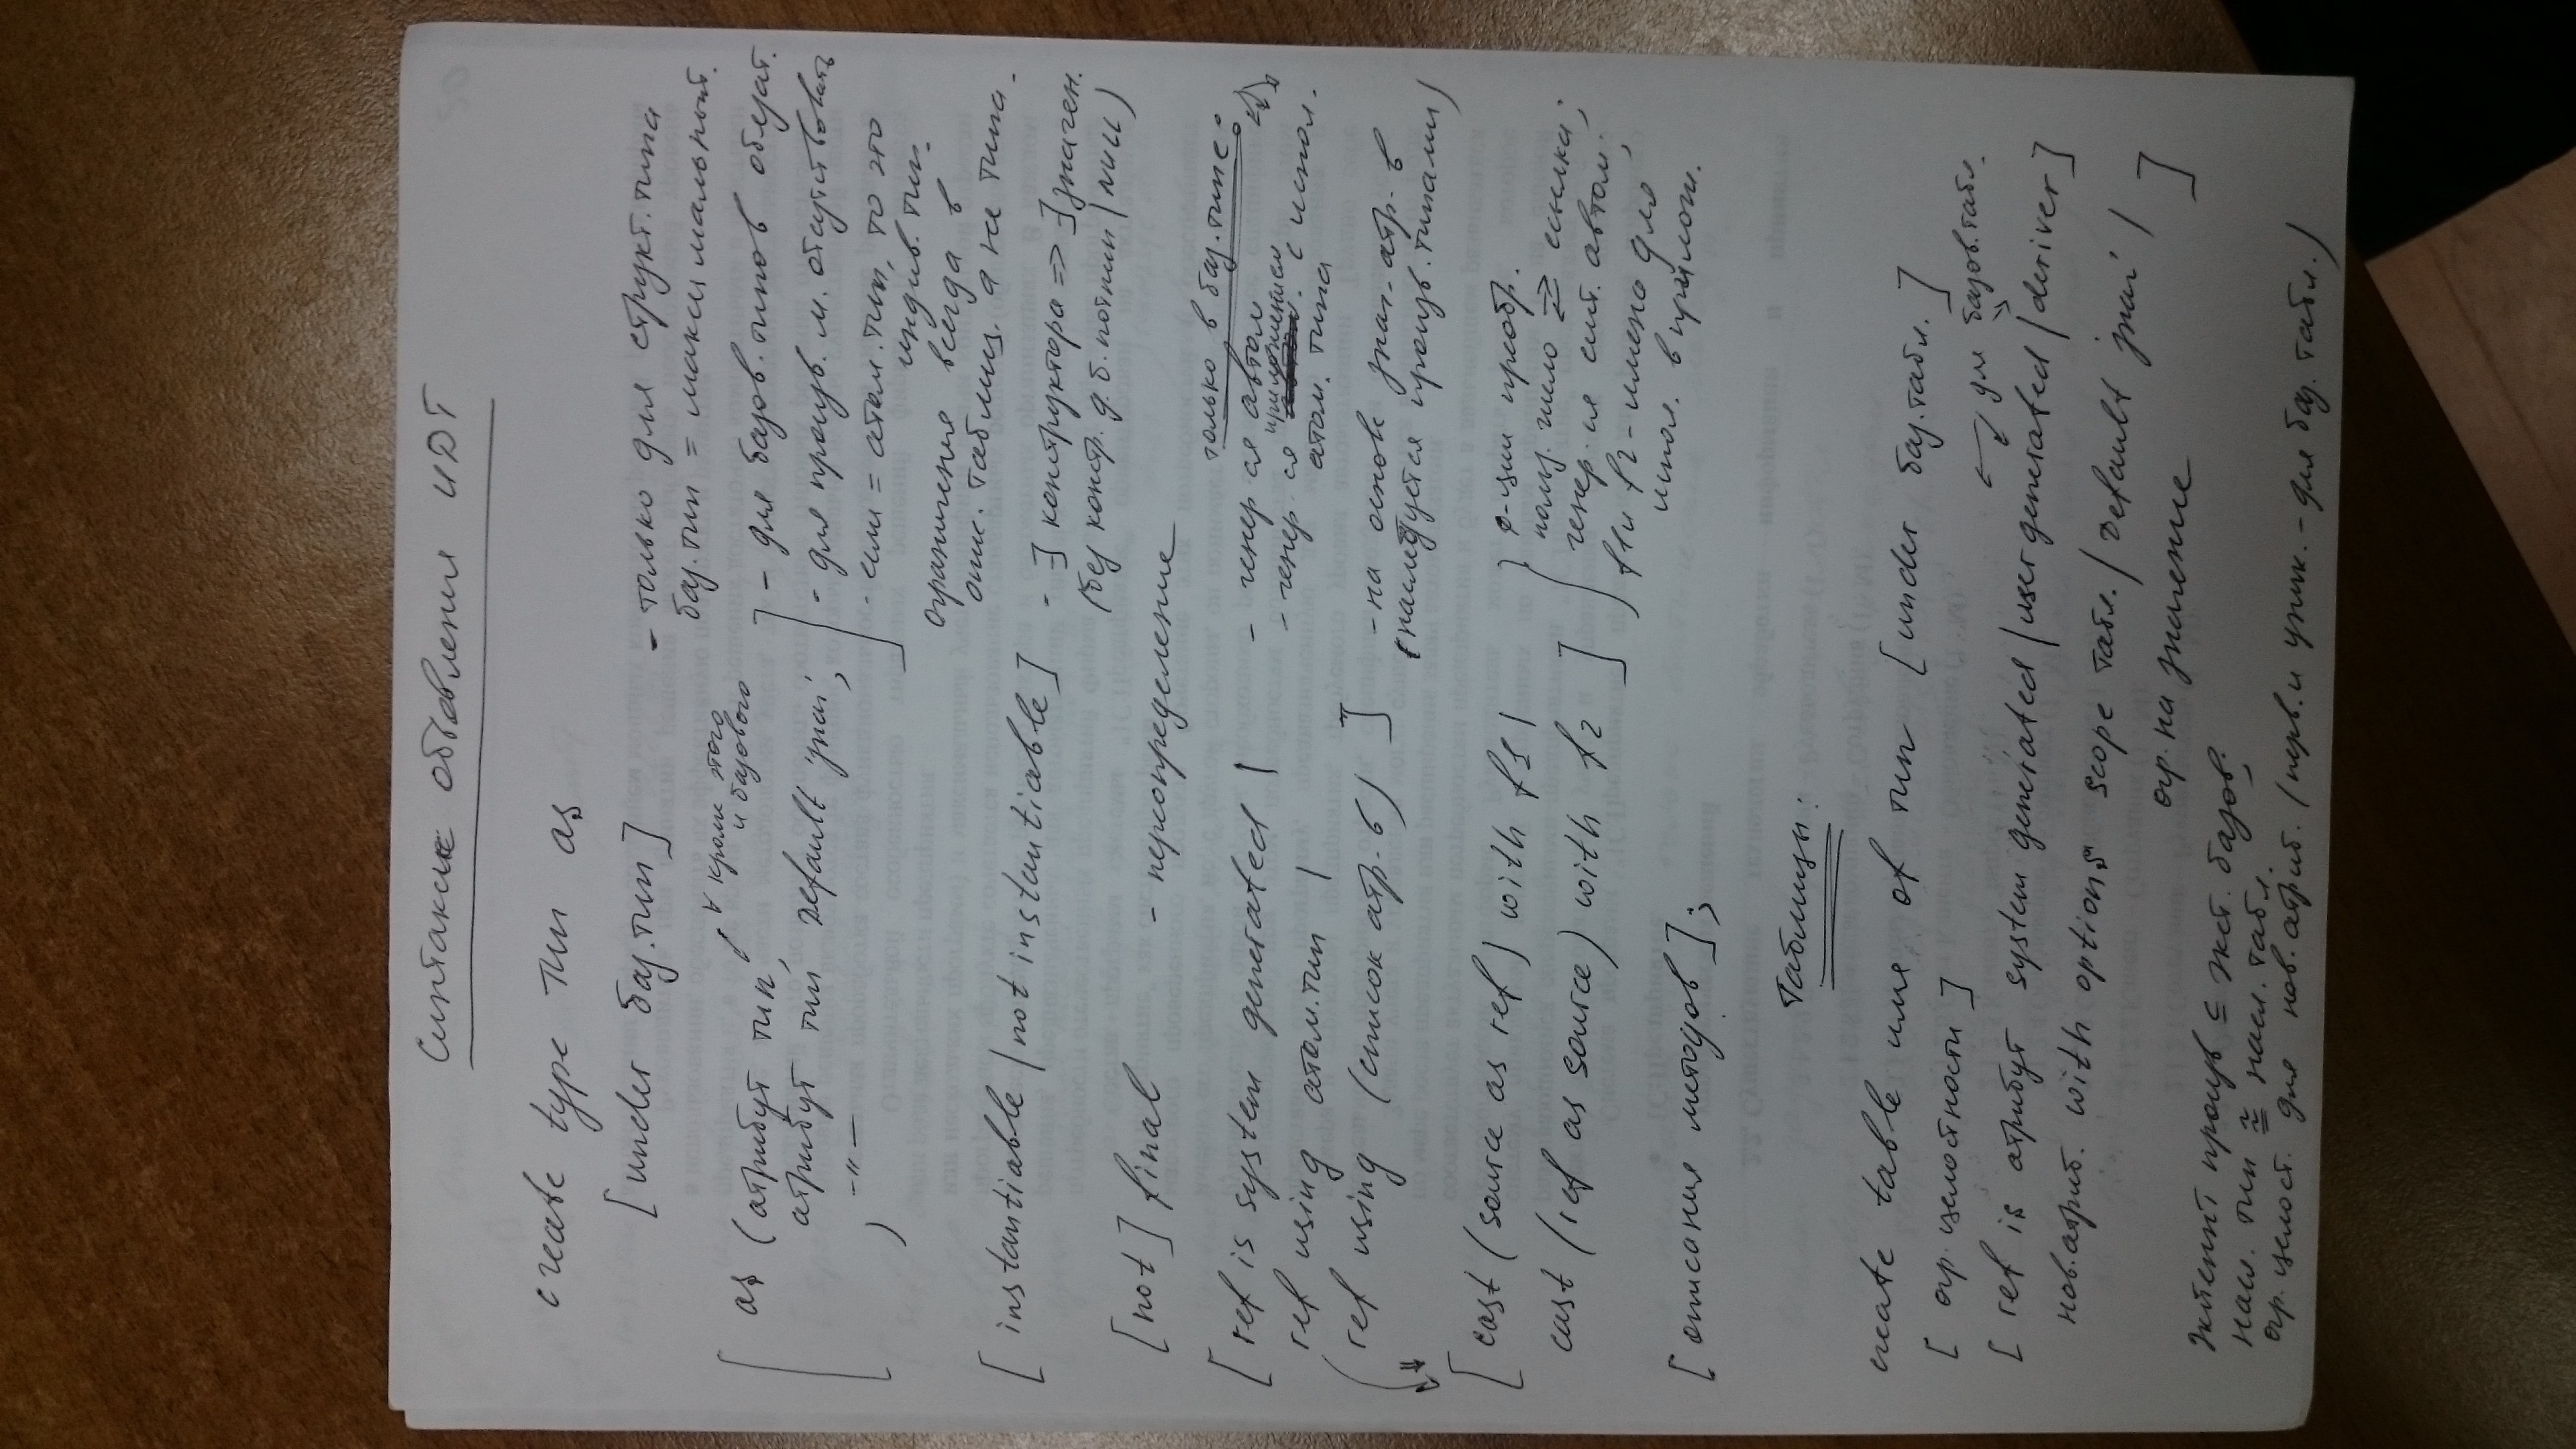 Синтаксис объявления UDT
create type тип as
[under баз.тип] - только для структ.типа
баз.тип = максимальный.
∀ кроме этого
и базового
[ as (атрибут тип, ] - для базов.типов обязат.
атрибут тип Default 'знач', - для произв. м. отсутствовать
-"- - если = атом.тип, то это
) индив. тип.
ограничения всегда в
опис. таблиц, а не типа.
[ instantiable | not instantiable ] - ∃ конструктора => ∃ значен.
(без констр. д.б. подтип | NULL)
[not] final - переопределение
только в баз.типе:
[ ref is system generated | - генер-ся автом
ref using атом.тип | - генер-ся приложением с испол.
атом. типа
ref using (список атр-в) ] - на основе знач. атр-в
(наследуется произв.типами)
[ cast (source as ref) with f1 | } ф-ции преобр.
польз. число ⇄ ссылка;
cast (ref as source) with f2 ] генер-ся сист. автом;
f1 и f2 - имена для
испол. в прилож.
[ описания методов ];
Таблицы:
create table имя of тип [under баз.табл.]
[ огр. целостности ]
для базов.табл.
[ ref is атрибут system generated | user generated | deriver ]
нов.атриб. with options scope табл. | Default знач |
огр. на значение ]
экстент произв ⊆ экст. базов;
насл. тип ≅ насл. табл.
огр. целост. для нов.атриб. (перв. и уник. - для баз. табл.)